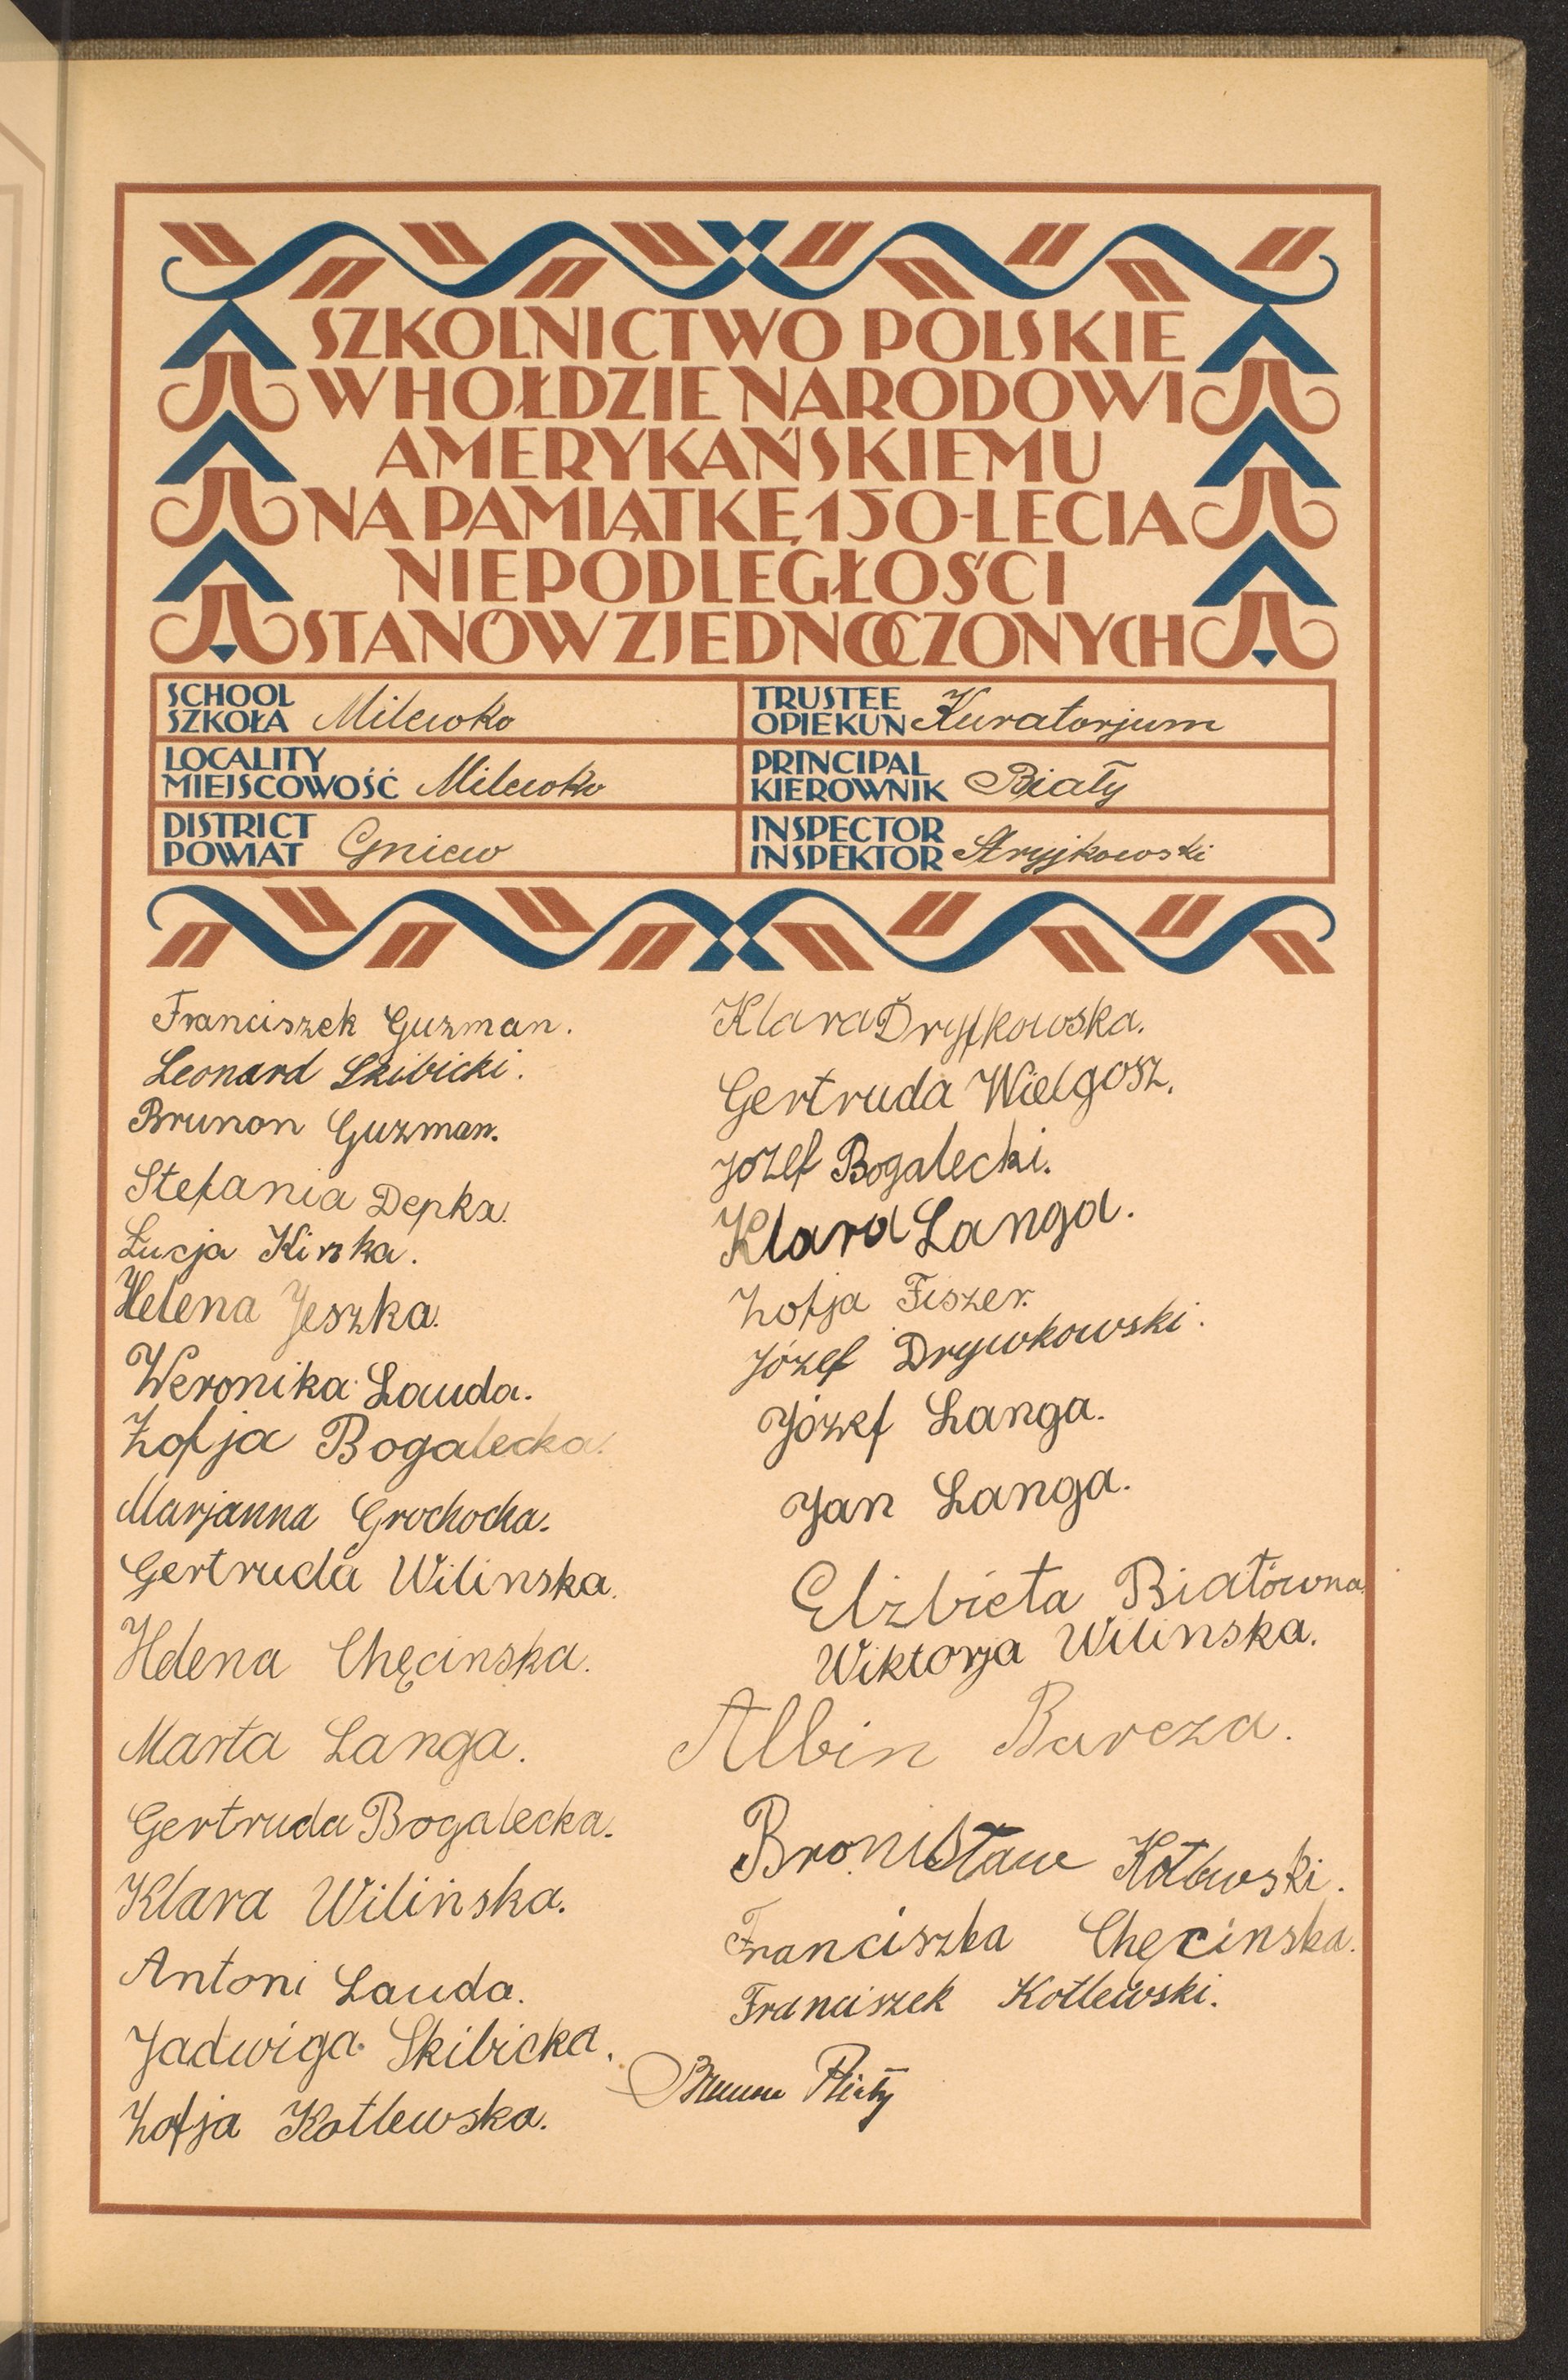 SZKOLNICTWO POLSKIE
W HOŁDZIE NARODOWI
AMERYKAŃSKIEMU
NA PAMIĄTKĘ 150-LECIA
NIEPODLEGŁOŚCI
STANÓW ZJEDNOCZONYCH
SCHOOL
SZKOŁA Milewko
TRUSTEE
OPIEKUN Kuratorjum
LOCALITY
MIEJSCOWOŚĆ Milewko
PRINCIPAL
KIEROWNIK Biały
DISTRICT
POWIAT Gniew
INSPECTOR
INSPEKTOR Stryjkowski
Franciszek Guzman.
Leonard Skibicki.
Brunon Guzman.
Stefania Depka.
Łucja Kinka.
Helena Jeszka.
Weronika Lauda.
Zofja Bogalecka.
Marjanna Grochocka.
Gertruda Wilinska.
Helena Chęcinska.
Marta Langa.
Gertruda Bogalecka.
Klara Wilińska.
Antoni Lauda.
Jadwiga Skibicka.
Zofja Kotlewska.
Klara Dryfkowska.
Gertruda Wielgosz.
Józef Bogalecki.
Klara Langa.
Zofja Fiszer.
Józef Drywkowski.
Józef Langa.
Jan Langa.
Elżbieta Białówna
Wiktorja Wilinska.
Albin Bareza.
Bronisław Kotlewski.
Franciszka Chęcinska.
Franciszek Kotlewski.
Biały